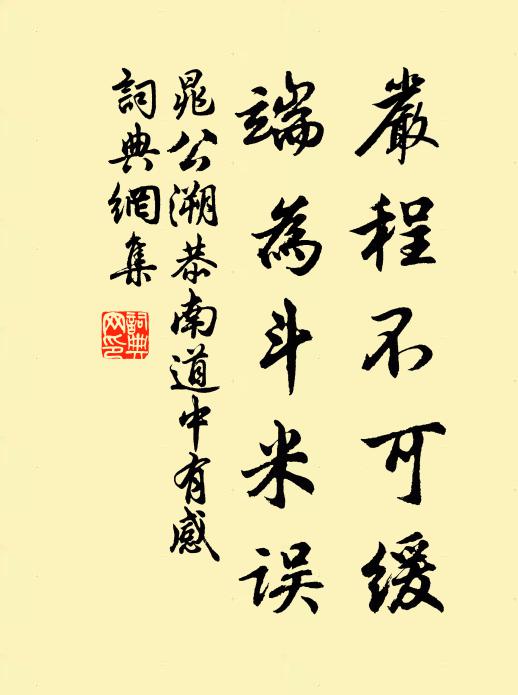 嚴程不可緩
端為斗米误
晁公溯恭南道中有感
詞典網集
詞典网印